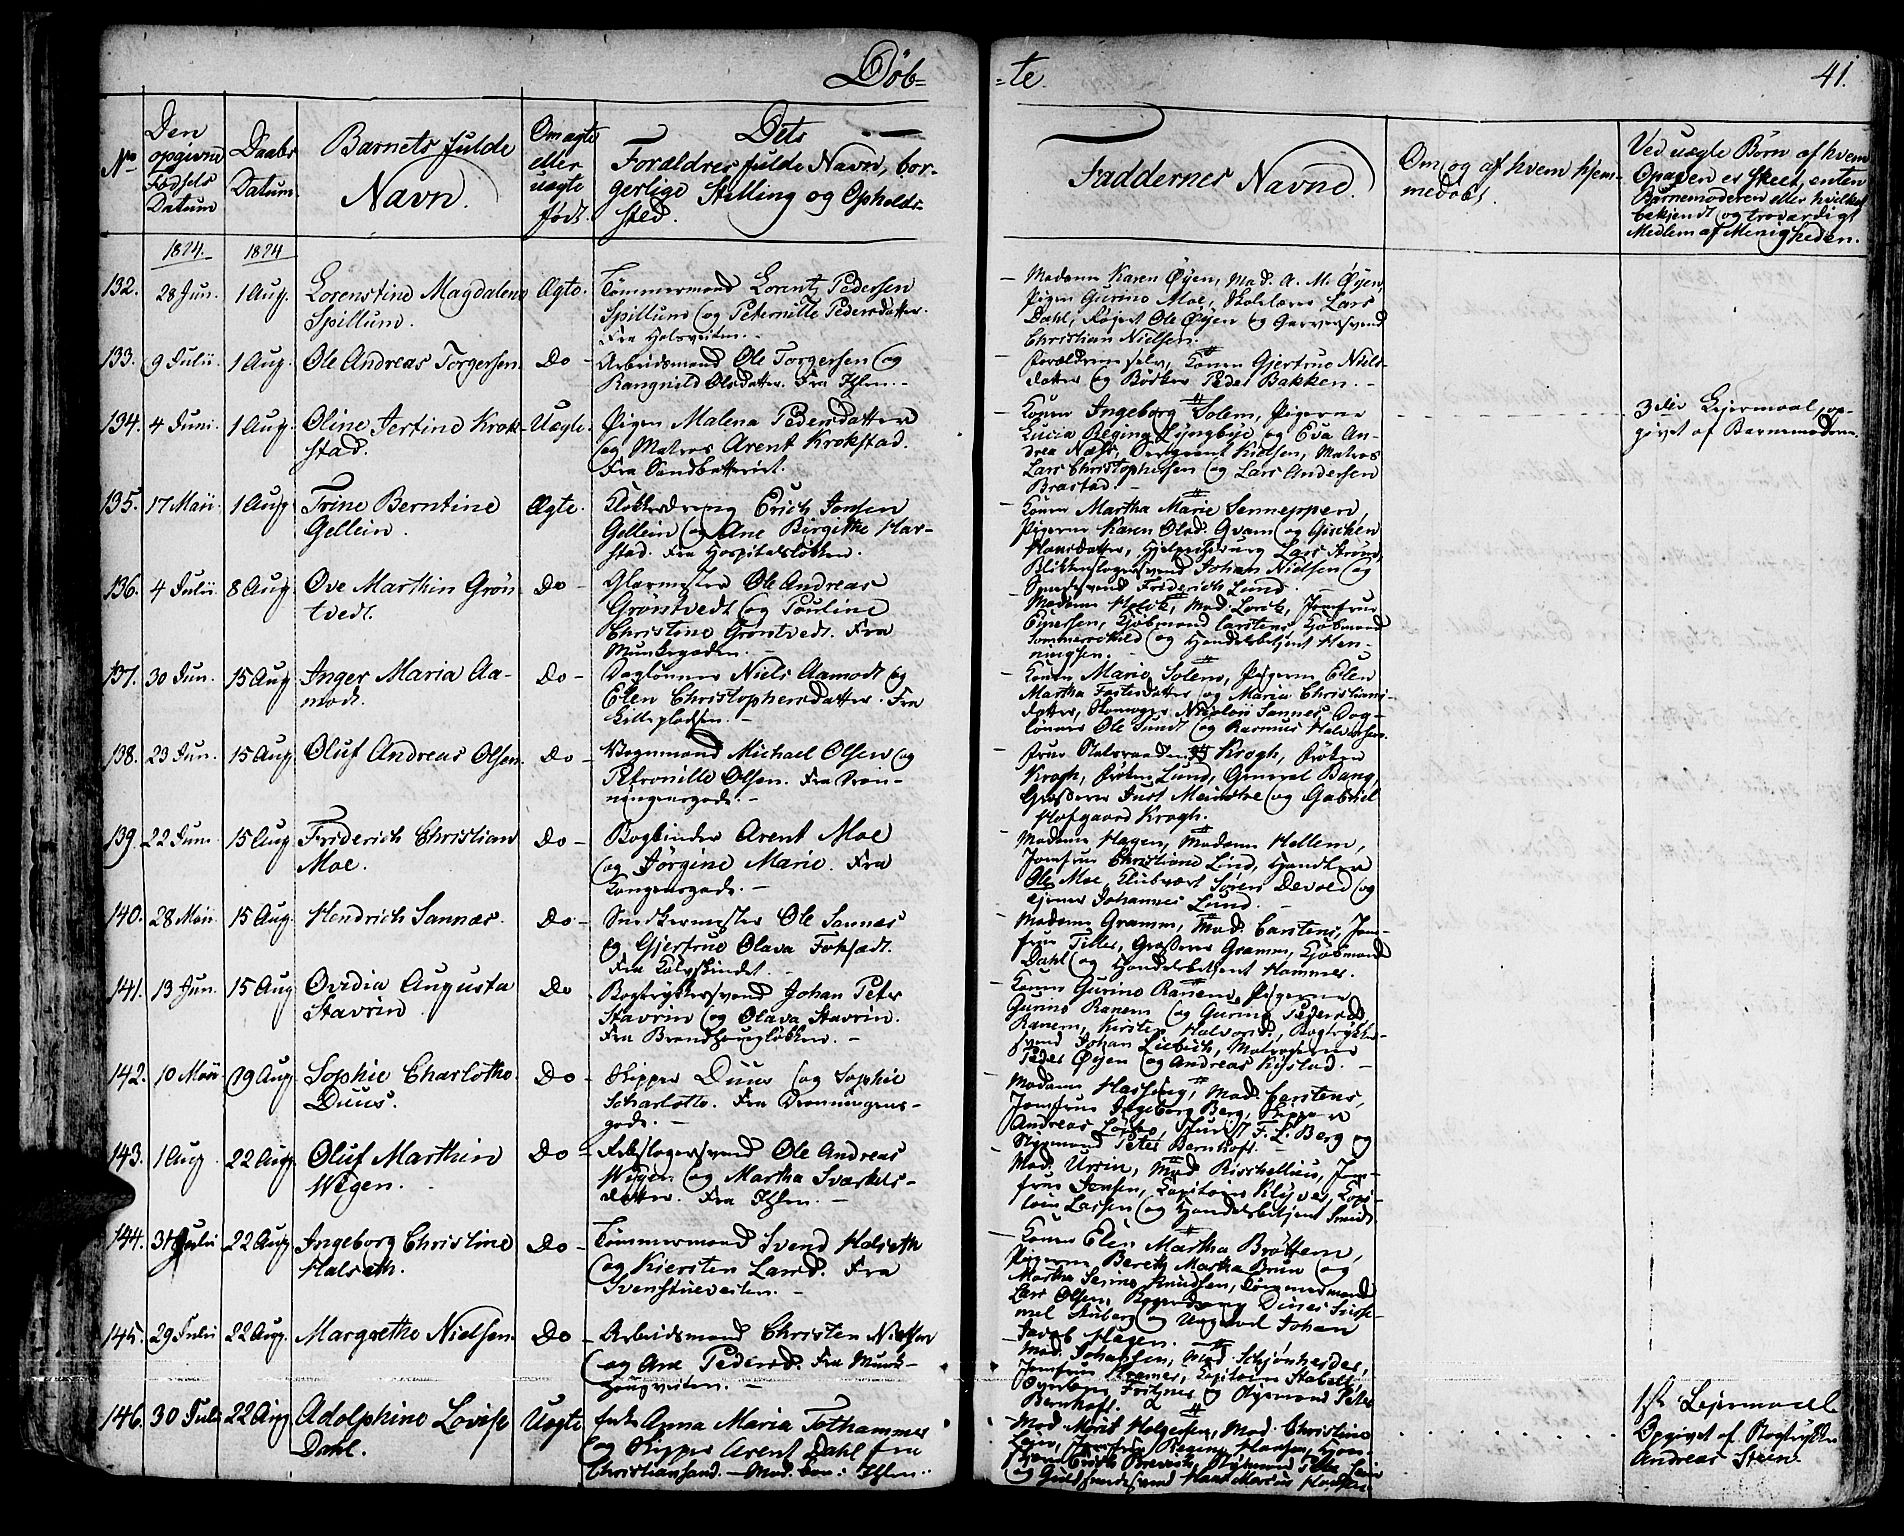 Døb=
=te.
41.
No
Den opgivne Fødsels Datum
Daabs Datum
Barnets fulde Navn.
Om ægte eller uægte født.
Dets Forældres fulde Navn, borgerlige Stilling og Opholdssted.
Faddernes Navne.
Om og af hvem hjemmedøbt.
Ved uægte Børn af hvem Opgaven er skeet, enten Barnemoderen eller hvilket bekjendt og troværdigt Medlem af Menigheden.
1824.
1824
132.
28 Jun.
1 Aug.
Lorenstine Magdalena
Spillum.
Ægte.
Tømmermand Lorentz Pedersen
Spillum og Peternille Pedersdatter.
Madame Karen Øyen, Mad. A. M. Øyen
Pigen Gurine Moe, Skolelærer Lars
Dahl, Ole Øyen og Garversvend
Christian Nielsen.
133.
9 Julii
1 Aug.
Ole Andreas Torgersen.
Do -
Arbeidsmand Ole Torgersen og
Rangnild Olsdatter. Fra Ihlen.
Forældrene selv, Konen Gjertrud Niels-
datter og Bødker Peder Bakken.
134.
4 Juni
1 Aug.
Oline Jertine Krok-
stad.
Uægte.
Pigen Malena Pedersdatter
og Matros Arent Krokstad.
Fra Sandbatteriet.
Konen Ingeborg Solem, Pigerne
Lucia Regina Lyngbye og Eva An-
drea Næss, Nielsen, Matros
Lars Christophersen og Lars Andersen
Brastad.
3die Lejermaal, op-
givet af Barnemoderen.
135.
17 Maii
1 Aug
Trine Berntine
Gellein.
Ægte.
Erich Jonsen
Gellein og Ane Birgitte Har-
stad. Fra Hospitalsløkken.
Konen Martha Marie Senneppen,
Pigerne Karen Olsd. Qvam og Gischen
Hansdatter, Lars Strand,
Blikkenslagersvend Johan Nielsen og
Friderich Lund.
136.
4 Julii
8 Aug
Ove Marthin Grön
tvedt.
Do -
Glarmester Ole Andreas
Gröntvedt og Pauline
Christine Gröntvedt. Fra
Munkegaden.
Madame Holck, Mad. Lorck, Jomfrue
Kjøbmand Carstens, Kjøbmand
Sommerschild og Handelsbetjent Hen-
ningsen.
137.
30 Jun.
15 Aug
Inger Maria Aa-
modt.
Do -
Daglønner Niels Aamodt og
Elen Christophersdatter. Fra
Konen Marie Solem, Pigerne Elen
Martha og Maria Christians-
datter, Nicolai Sannes, Dag-
lønner Ole Sundt og Rasmus Halvorsen.
138.
23 Jun.
15 Aug
Oluf Andreas Olsen.
Do -
Vognmand Michael Olsen og
Petronille Olsen. Fra Dron-
ningensgade.
Frue Statsraadinde Krogh, Frøken
Krogh, Frøken Lund, General Bang,
Grosserer Just Meincke og Gabriel
Hofgaard Krogh.
139.
22 Juni
15 Aug
Friderich Christian
Moe.
Do -
Bogbinder Arent Moe
og Jørgine Marie. Fra
Kongensgade.
Madame Hagen, Madame Hellem,
Jomfrue Christiane Lind, Handlende
Ole Moe, Klubvært Søren Devold og
Johannes Lund.
140.
28 Maii
15 Aug
Hendrich Sannæs.
Do -
Snedkermester Ole Sannæs
og Gjertrud Olava
Fra Kalvskindet.
Madame Gramm, Mad. Carstens, Jom-
frue Tiller, Grosserer Gramm, Kjøbmand
Dahl og Handelsbetjent Hammer.
141.
13 Jun.
15 Aug
Ovidia Augusta
Stavrin.
Do
Bogtrykkersvend Johan Peter
Stavrin og Olava Stavrin.
Fra Brandhougløkken.
Konen Gurine Ranem, Pigerne
Gurine Ranem og Gurine Pedersd.
Ranem, Kirsten Halvorsd., Bogtrykker-
svend Johan Liebich, Matroserne
Peder Øyen og Andreas
142.
10 Maii
19 Aug
Sophie Charlothe
Duus.
Do -
Skipper Duus og Sophie
Scharlotte. Fra Dronningens-
gade.
Madame Hassing, Mad. Carstens,
Jomfrue Ingeborg Berg, Skipperne
Andreas F. L. Berg og
Styrmand Peter Bernhoft.
143.
1 Aug
22 Aug
Oluf Marthin
Wigen.
Do -
Ole Andreas
Wigen og Martha Sværkels-
datter. Fra Ihlen.
Mad. Ursin, Mad. Jom-
frue Jensen, Kapitain Klyver, Kapi-
tain Lassen og Handelsbetjent Smidt.
144.
31 Julii
22 Aug
Ingeborg Christine
Halseth.
Do -
Tømmermand Svend Halseth
og Kiersten Larsd. Fra
Konen Elen Martha Brøttem,
Pigerne Bereth Martha Brun og
Martha Knudsen, Tømmermand
Lars Olsen,
og Ungkarl Johan
Jacob Hagen.
145.
29 Julii
22 Aug.
Margrethe Nielsen
Do -
Arbeidsmand Christen Nielsen
og Ane Pedersd. Fra Munk-
hougveiten.
Mad. Johansen, Mad. Schjønherder,
Jomfrue Kramer, Kapitain Stabell,
Fritzner og Styrmand Peter
Bernhoft.
146.
30 Julii
22 Aug
Adolphine Lovise
Dahl.
Uægte
Enke Anna Maria Tothammer
og Skipper Arent Dahl fra
Christiansand. - Mod. boe: Ihlen.
Mad. Marit Holgersen, Mad. Christine
Lein, Jomfrue Regine Hansen,
Styrmand Peter Lein
og Guldsmedsvend Hans Marcus
1ste Lejermaal
Opgivet af Bogtrykker
Andreas Steen.